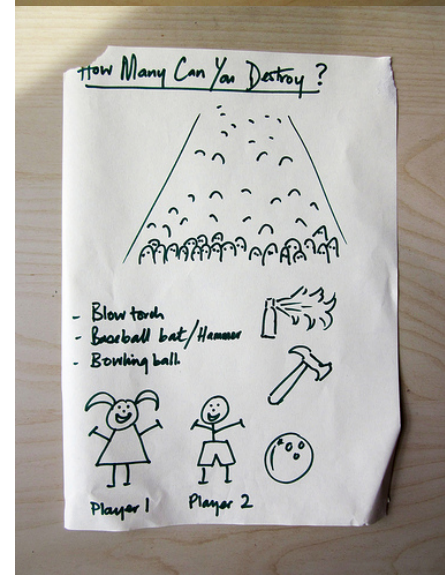 How Many Can You Destroy?
- Blow torch
- Baseball bat/Hammer
- Bowling ball
Player 1
Player 2